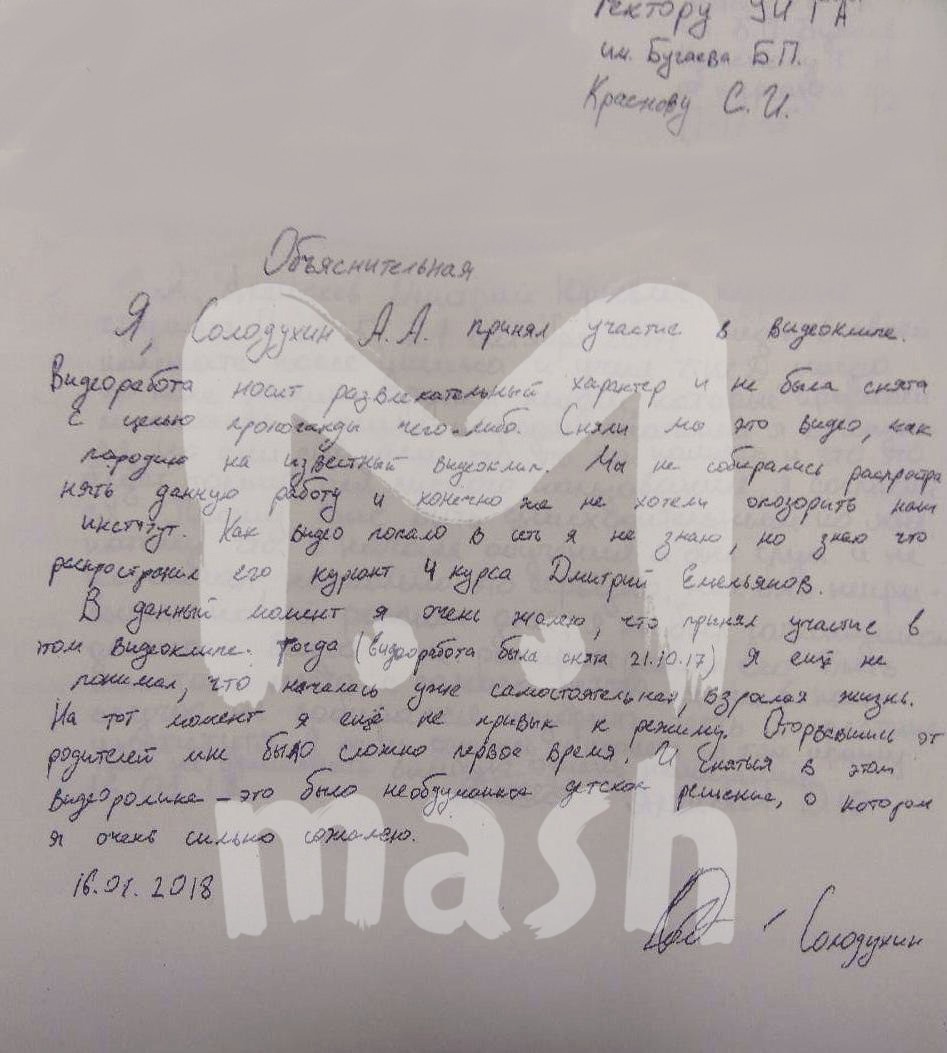 Ректору УИ ГА
им. Бугаева Б.П.
Краснову С.И.
Объяснительная
Я, Солодухин А.А. принял участие в видеоклипе.
Видеоработа носит развлекательный характер и не была снята
с целью пропоганды чего-либо. Сняли мы это видео, как
пародию на известный видеоклип. Мы не собирались распростра
нять данную работу и конечно же не хотели опозорить наш
институт. Как видео попало в сеть я не знаю, но знаю что
распространил его курсант 4 курса Дмитрий Емельянов.
В данный момент я очень жалею, что принял участие в
этом видеоклипе. Тогда (видеоработа была снята 21.10.17) я ещё не
понимал, что началась уже самостоятельная, взрослая жизнь.
На тот момент я ещё не привык к режиму. Оторвавшись от
родителей мне было сложно первое время. И сняться в этом
видеоролике – это было необдуманное детское решение, о котором
я очень сильно сожалею.
16.01.2018
Солодухин
mash